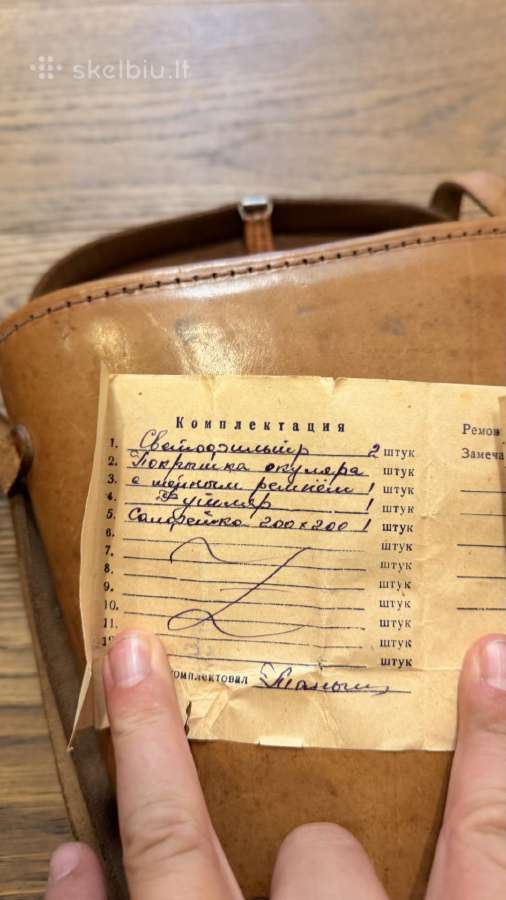 skelbiu.lt
Комплектация
1. Светофильтр 2 штук
2. Покрышка окуляра штук
3. с шейным ремнём 1 штук
4. Футляр 1 штук
5. Салфетка 200x200 1 штук
6. штук
7. штук
8. штук
9. штук
10. штук
11. штук
штук
комплектовал
Ремон
Замеча